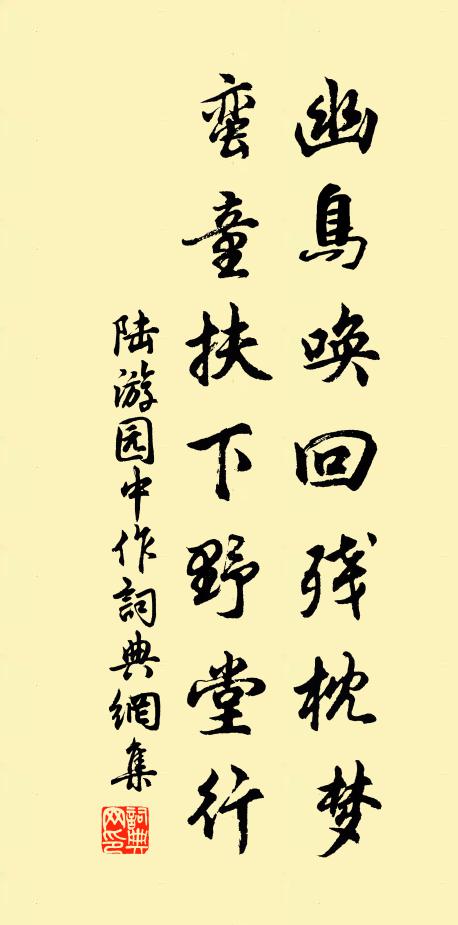 幽鳥唤回残枕梦
蛮童扶下野堂行
陆游园中作詞典網集
詞典
网印